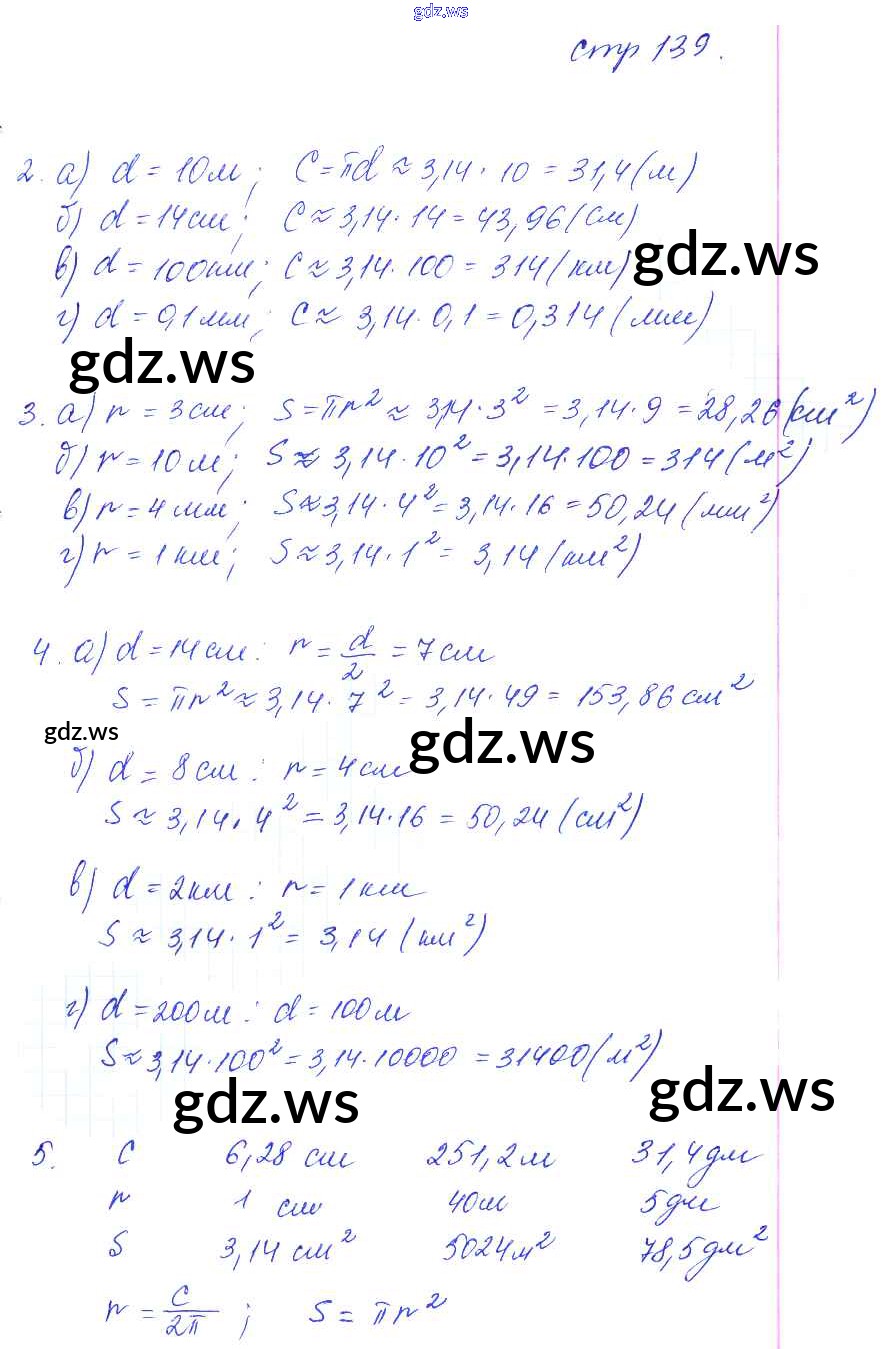 gdz.ws
стр 139.
2. а) d = 10м; C = πd ≈ 3,14 · 10 = 31,4 (м)
б) d = 14см; C ≈ 3,14 · 14 = 43,96 (см)
в) d = 100км; C ≈ 3,14 · 100 = 314 (км)
gdz.ws
г) d = 0,1мм; C ≈ 3,14 · 0,1 = 0,314 (мм)
gdz.ws
3. а) r = 3см; S = πr² ≈ 3,14 · 3² = 3,14 · 9 = 28,26 (см²)
б) r = 10м; S ≈ 3,14 · 10² = 3,14 · 100 = 314 (м²)
в) r = 4мм; S ≈ 3,14 · 4² = 3,14 · 16 = 50,24 (мм²)
г) r = 1км; S ≈ 3,14 · 1² = 3,14 (км²)
4. а) d = 14см : r = d/2 = 7см
S = πr² ≈ 3,14 · 7² = 3,14 · 49 = 153,86 см²
gdz.ws
gdz.ws
б) d = 8см : r = 4см
S ≈ 3,14 · 4² = 3,14 · 16 = 50,24 (см²)
в) d = 2км : r = 1км
S ≈ 3,14 · 1² = 3,14 (км²)
г) d = 200м : d = 100м
S ≈ 3,14 · 100² = 3,14 · 10000 = 31400 (м²)
gdz.ws
gdz.ws
5. C 6,28 см 251,2м 31,4дм
r 1 см 40м 5дм
S 3,14 см² 5024м² 78,5дм²
r = C/2π ; S = πr²